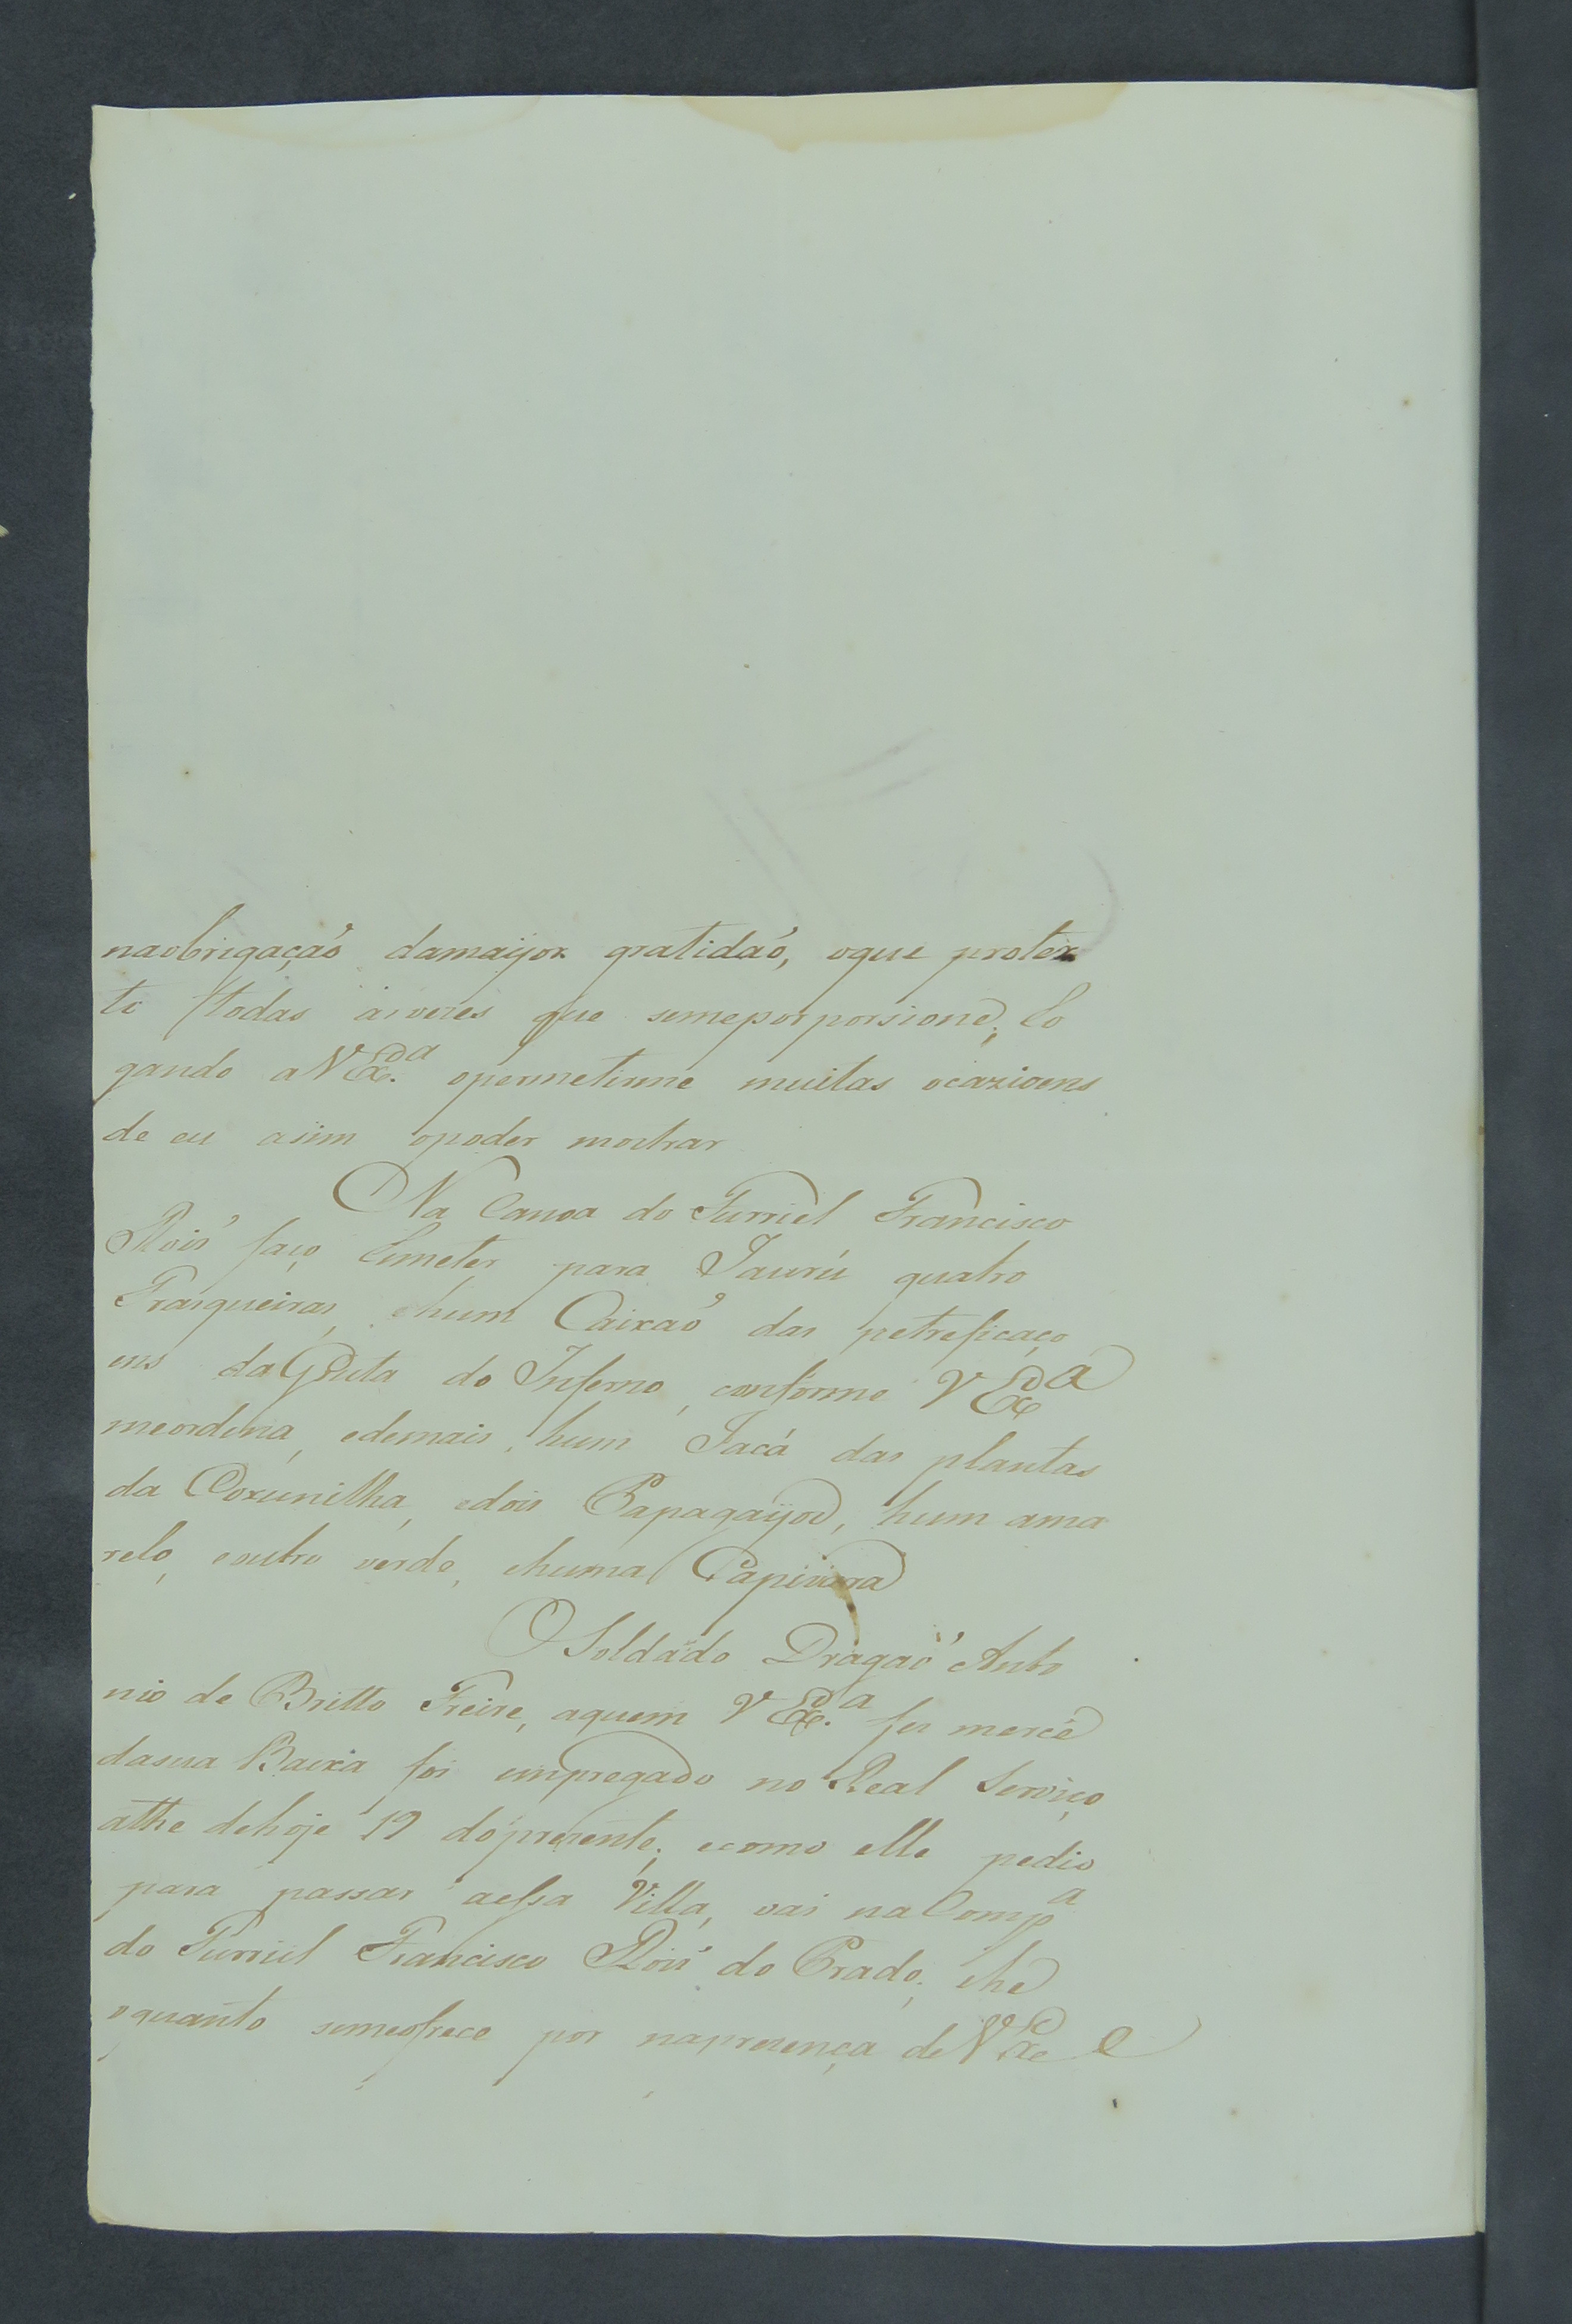 naobrigaçaõ damaijor gratidaõ, oque protex
to todas as vezes que semeporporsione, Ro
gando aVEx.ª opermetirme muitas ocazioens
de eu asim opoder mostrar
Na Canoa do Furriel Francisco
Roiz' faço Remeter para Jaurú quatro
Frasqueiras, ehum Caixaõ das petreficaço
ens daGruta do Inferno, conforme VExª
meordena, edemais, hum Jacá das plantas
da Coxunilha, edois Papagaijos, hum ama
relo, eoutro verde, ehuma Capivara
O Soldado Dragaõ Anto
nio de Britto Freire, aquem VEx.ª fes mercê
dasua Baixa foi empregado no Real Serviço,
athe dehoje 19 do prezente; ecomo elle pedio
para passar aessa Villa, vai na Compª
do Furriel Francisco Roiz' do Prado; ehe
oquanto semeofrece por naprezença de VExe